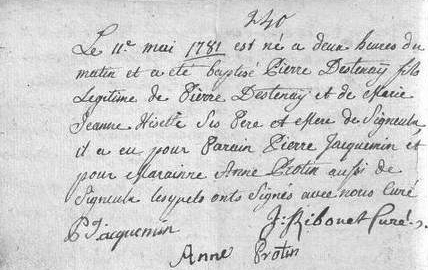 240
Le 11e mai 1781 est né a deux heures du
matin et a eté baptisé Pierre Destenaÿ fils
Legitime de Pierre Destenaÿ et de Marie
Jeanne Hisette Ses Pere et Mere de Signeulx
il a eu pour Parain Pierre Jacquemin et
pour Marainne Anne Protin aussi de
Signeulx lesquels onts Signés avec nous Curé
P Jacquemin J: Ribonet Curé
Anne Protin